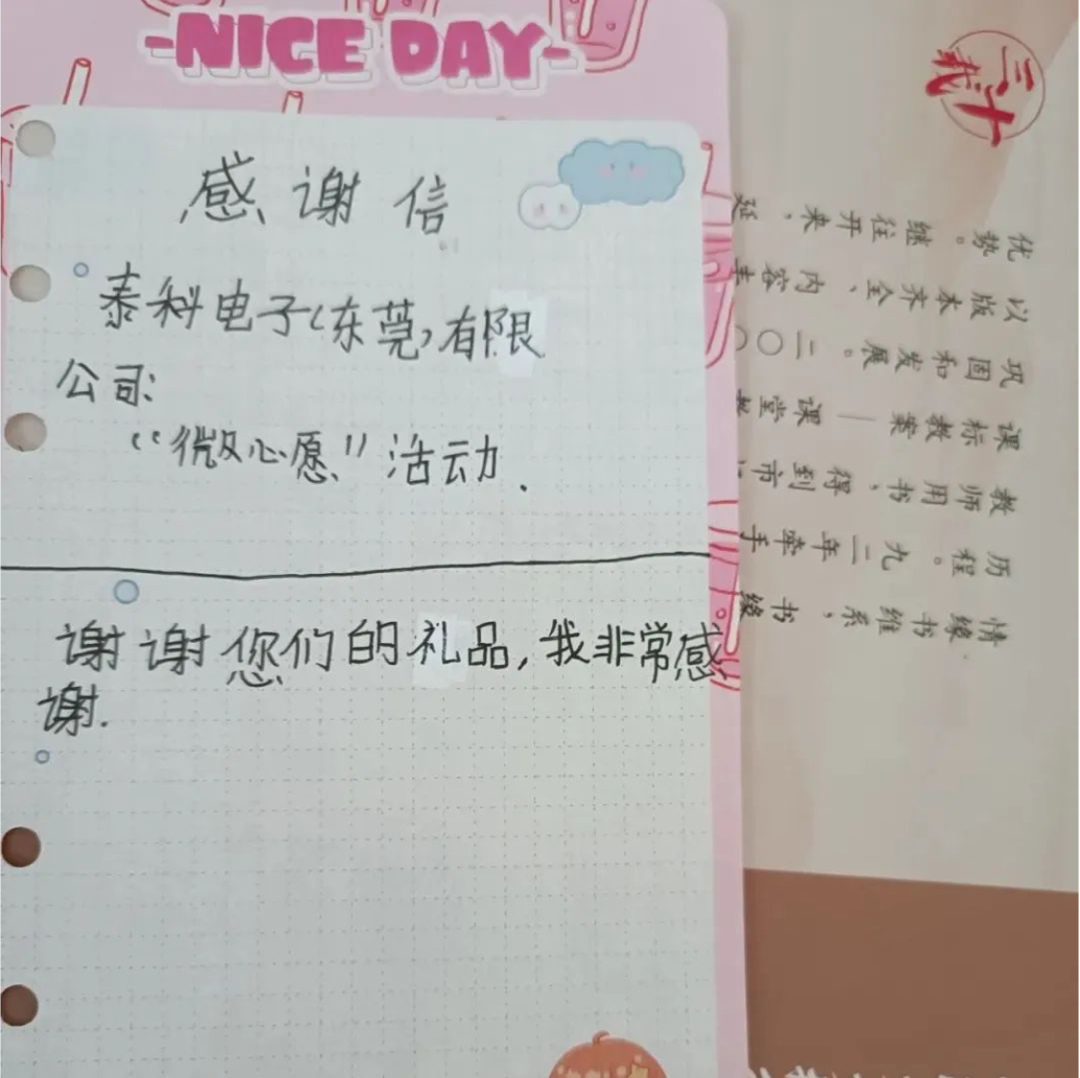 -NICE DAY-
感谢信
泰科电子(东莞)有限
公司:
“微心愿”活动.
谢谢您们的礼品,我非常感
谢.
三十
载
优势。继往开来,延
以版本齐全、内容丰
巩固和发展。二〇〇
课标教案——课堂教
教师用书,得到市
历程。九二年牵手
情缘书维系,书缘